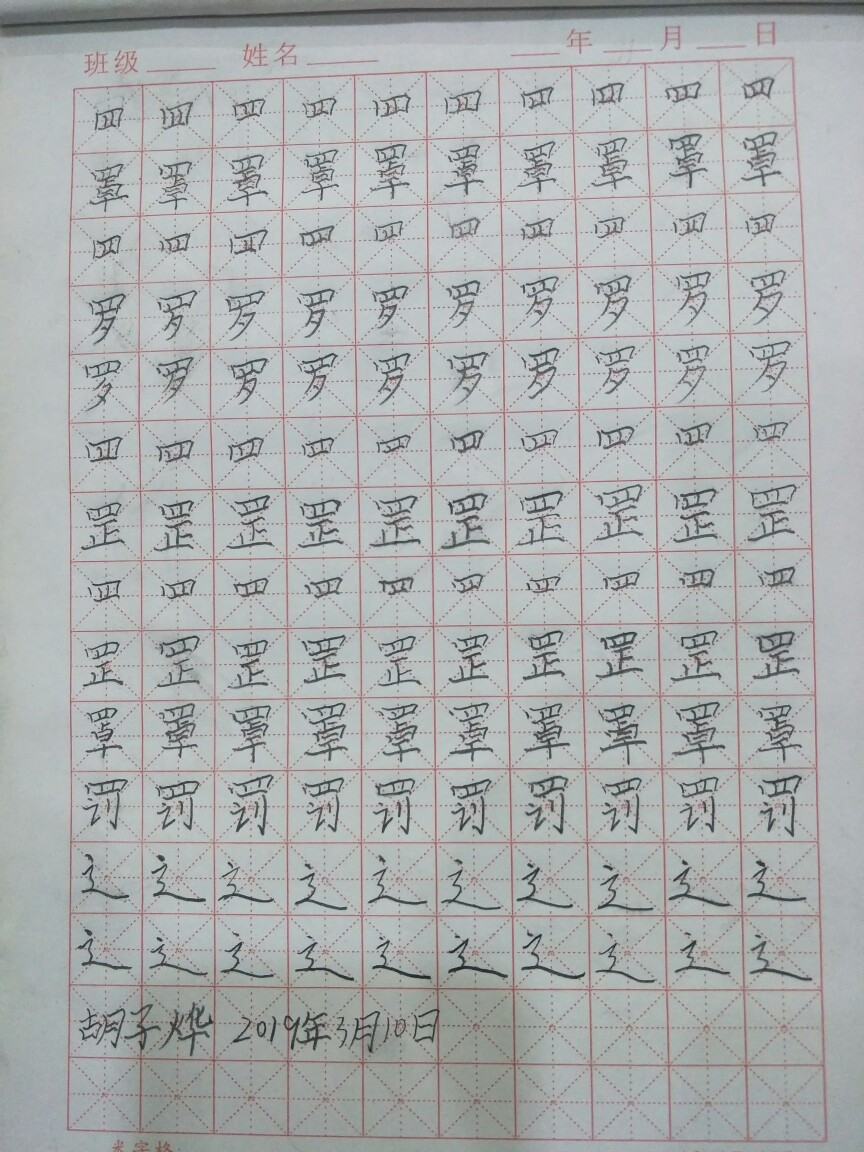 班级 姓名 年 月 日
罒罒罒罒罒罒罒罒罒罒
罩罩罩罩罩罩罩罩罩罩
罒罒罒罒罒罒罒罒罒罒
罗罗罗罗罗罗罗罗罗罗
罗罗罗罗罗罗罗罗罗罗
罒罒罒罒罒罒罒罒罒罒
罡罡罡罡罡罡罡罡罡罡
罒罒罒罒罒罒罒罒罒罒
罡罡罡罡罡罡罡罡罡罡
罩罩罩罩罩罩罩罩罩罩
罚罚罚罚罚罚罚罚罚罚
辶辶辶辶辶辶辶辶辶辶
辶辶辶辶辶辶辶辶辶辶
胡子烨 2019年3月10日